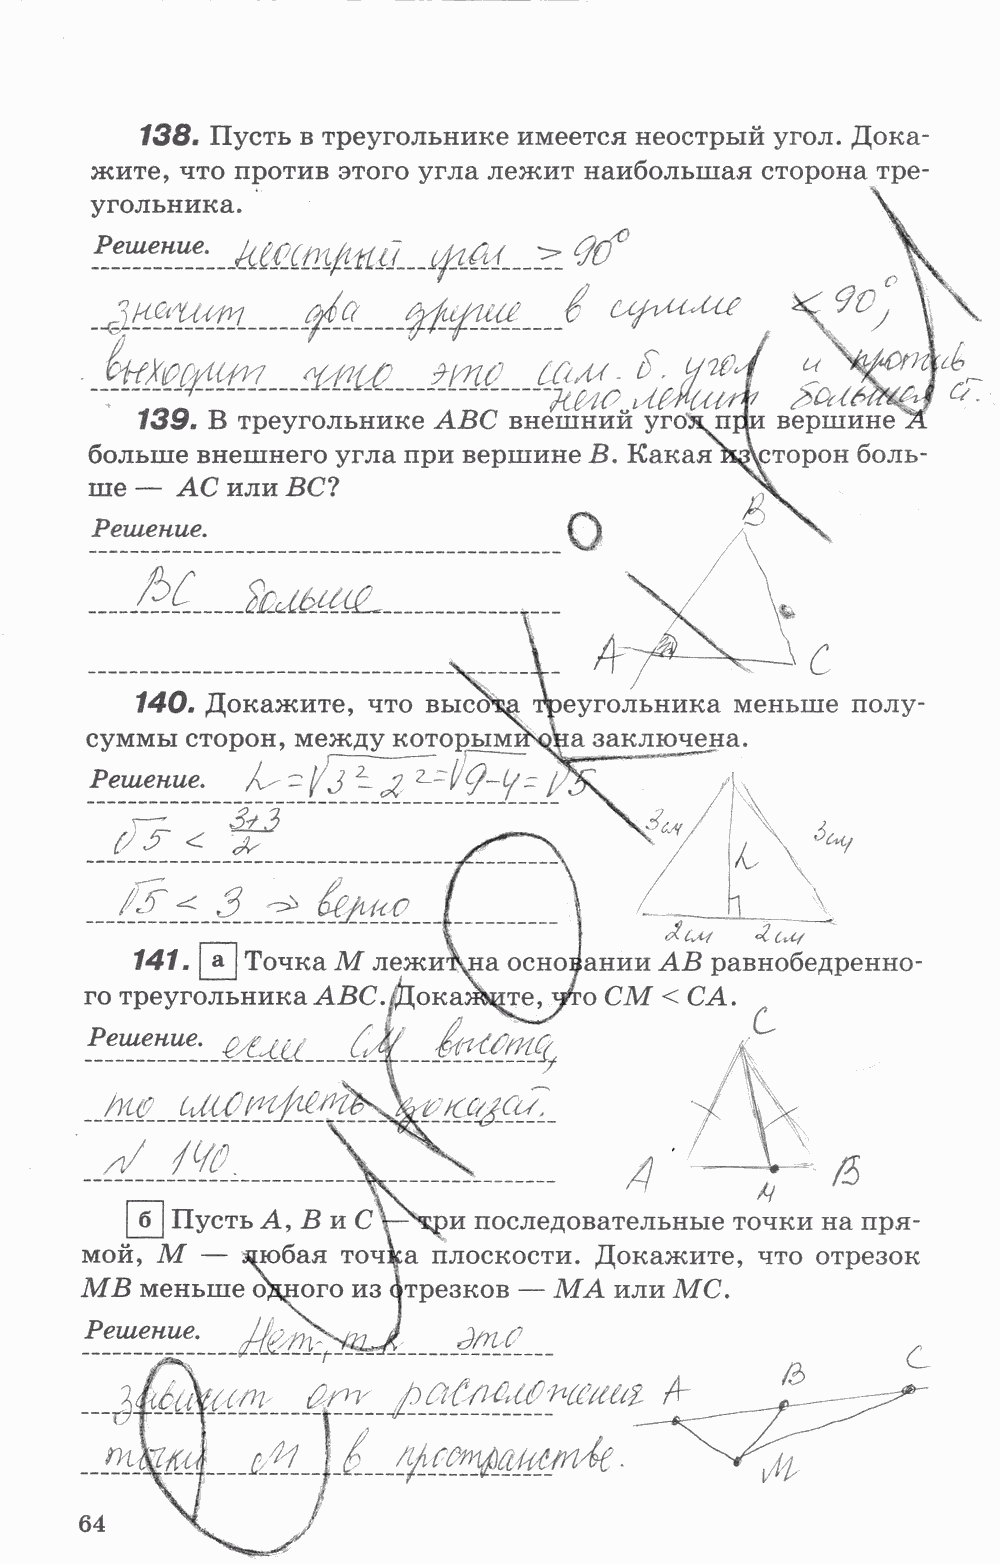 138. Пусть в треугольнике имеется неострый угол. Дока-
жите, что против этого угла лежит наибольшая сторона тре-
угольника.
Решение. неострый угол > 90°
значит два другие в сумме < 90°,
выходит что это сам. б. угол и против
него лежит большая ст.
139. В треугольнике ABC внешний угол при вершине A
больше внешнего угла при вершине B. Какая из сторон боль-
ше — AC или BC?
Решение.
B
BC больше
A C
140. Докажите, что высота треугольника меньше полу-
суммы сторон, между которыми она заключена.
Решение. h = √3² - 2² = √9-4 = √5
√5 < 3+3/2
3см h 3см
√5 < 3 ⇒ верно
2см 2см
141. а Точка M лежит на основании AB равнобедренно-
го треугольника ABC. Докажите, что CM < CA.
Решение. если CM высота,
C
то смотреть доказат.
N 140.
A M B
б Пусть A, B и C — три последовательные точки на пря-
мой, M — любая точка плоскости. Докажите, что отрезок
MB меньше одного из отрезков — MA или MC.
Решение. Нет, т.к это
зависит от расположения
A B C
точки M в пространстве.
M
64